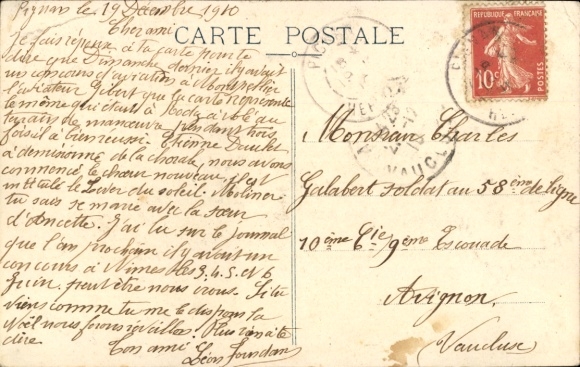 Pignan le 19 Décembre 1910
Cher ami
Je fais réponse à ta carte pour te
dire que Dimanche dernier il y avait
un concours d'aviation à Montpellier
l'aviateur que la carte représente
le même qui était à a volé au
terrain de manœuvre pendant trois
fois il a bien réussi Etienne
a démissionné de la chorale, nous avons
commencé le chœur nouveau, il est
intitulé le Lever du soleil. Moliner
tu sais se marie avec la sœur
d'Ancette. J'ai lu sur le journal
que l'an prochain il y avait un
concours à Nimes les 3.4.5. et 6
Juin, peut être nous irons. Si tu
viens comme tu me le dis pour la
Noël nous ferons réveillon. Plus rien à te
dire.
Ton ami Léon Jourdan
CARTE POSTALE
REPUBLIQUE FRANÇAISE
10c
POSTES
VAUCLUSE
Monsieur Charles
Galabert soldat au 58ème de ligne
10ème Cie 9ème Escouade
Avignon.
Vaucluse